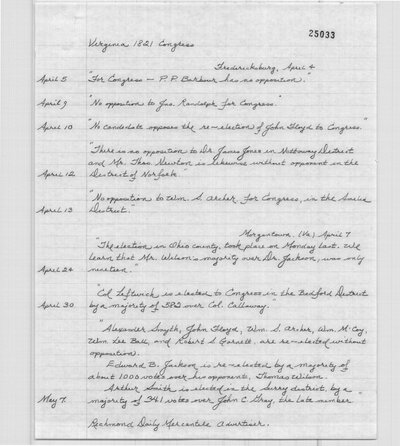 25033
Virginia 1821 Congress
Fredericksburg, April 4
April 5 "For Congress — P.P. Barbour has no opposition."
April 9 "No opposition to Jno. Randolph for Congress."
April 10 "No candidate opposes the re-election of John Floyd to Congress."
"There is no opposition to Dr. James Jones in Nottoway District
and Mr. Thos. Newton is likewise without opponent in the
April 12 District of Norfolk."
"No opposition to Wm. S. Archer, for Congress, in the Amelia
April 13 District."
Morgantown, (Va) April 7
"The election in Ohio county, took place on Monday last. We
learn that Mr. Wilson's majority over Dr. Jackson, was only
April 24 nineteen."
"Col Leftwich is elected to Congress in the Bedford District
April 30 by a majority of 382 over Col. Callaway."
"Alexander Smyth, John Floyd, Wm. S. Archer, Wm. McCoy,
Wm Lee Ball, and Robert S Garnett, are re-elected without
opposition.
Edward B. Jackson is re-elected by a majority of
about 1000 votes over his opponent, Thomas Wilson.
Arthur Smith is elected in the Surry district, by a
May 7. majority of 341 votes over John C Gray, the late member."
Richmond Daily Mercantile Advertiser.